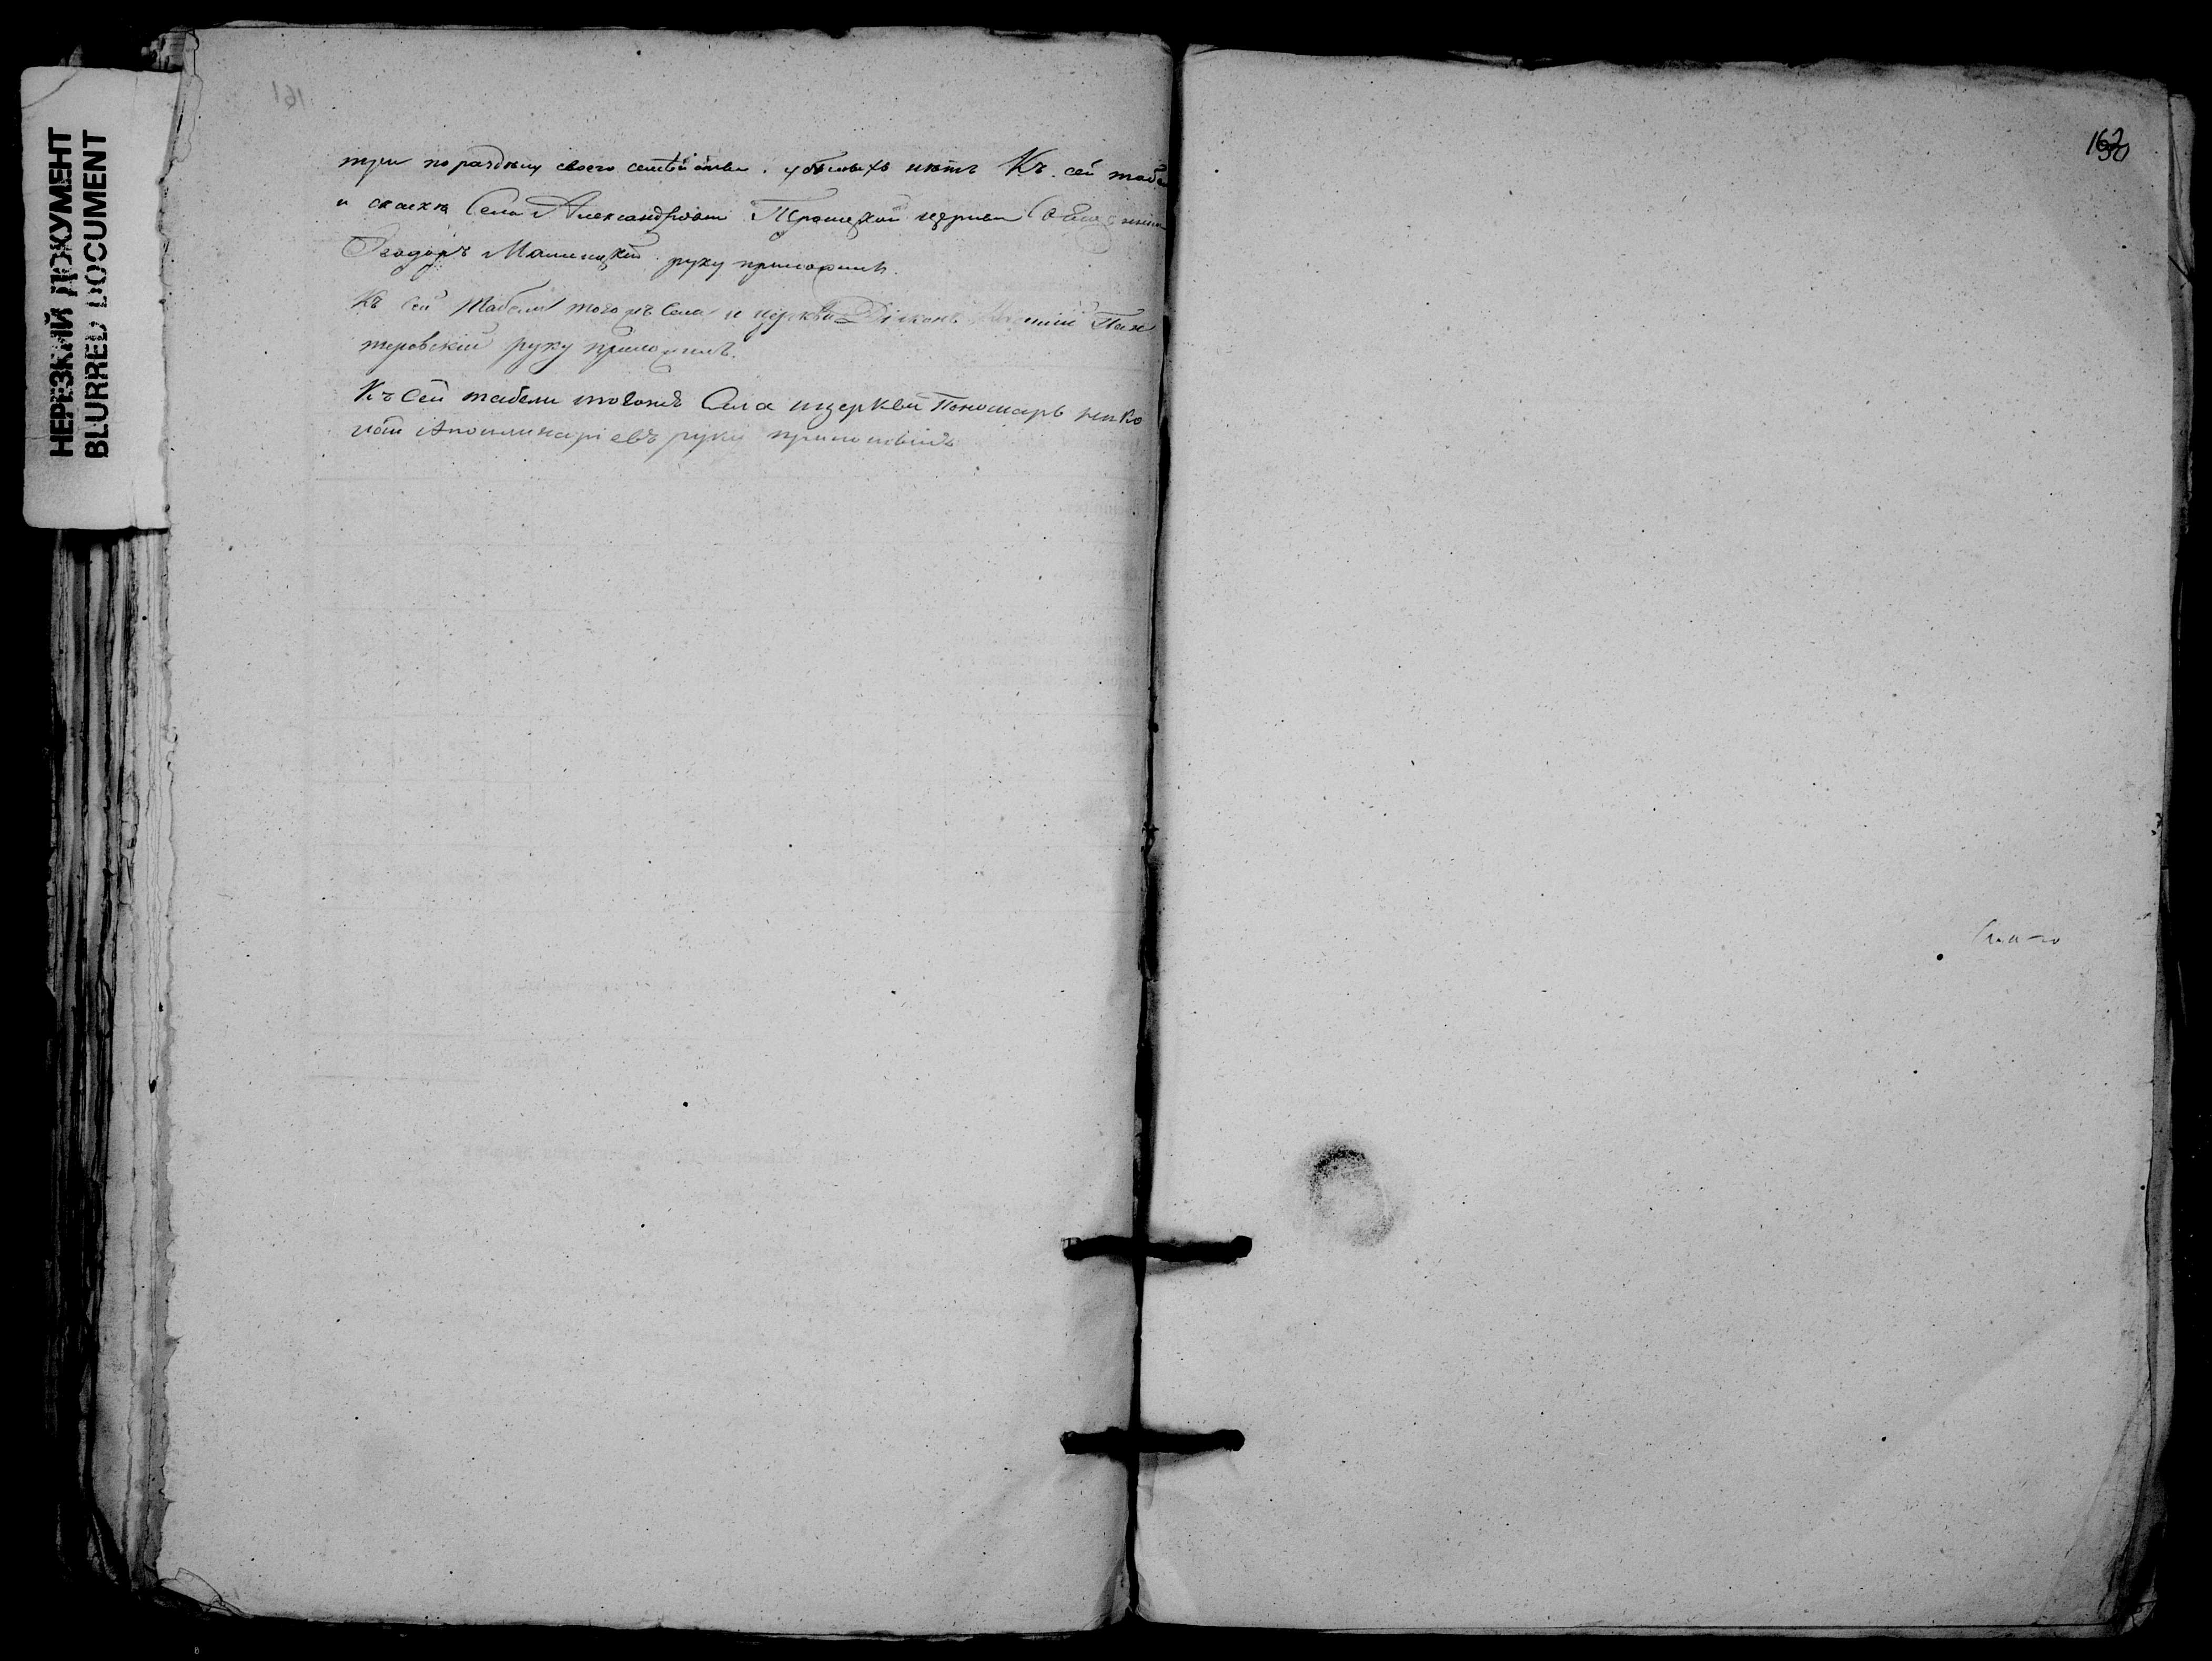 НЕРЕЗКИЙ ДОКУМЕНТ
BLURRED DOCUMENT
161
три по разделу своего семейства. убылыхъ нѣтъ Къ сей
и скаскѣ Села Александровки Троицкой церкви
Феодоръ руку приложилъ.
Къ сей табели тогожъ Села и церкви Діаконъ
руку приложилъ.
Къ сей табели тогожъ Села ицеркви Пономарь Нико
лай Аполинаріевъ руку приложилъ
162